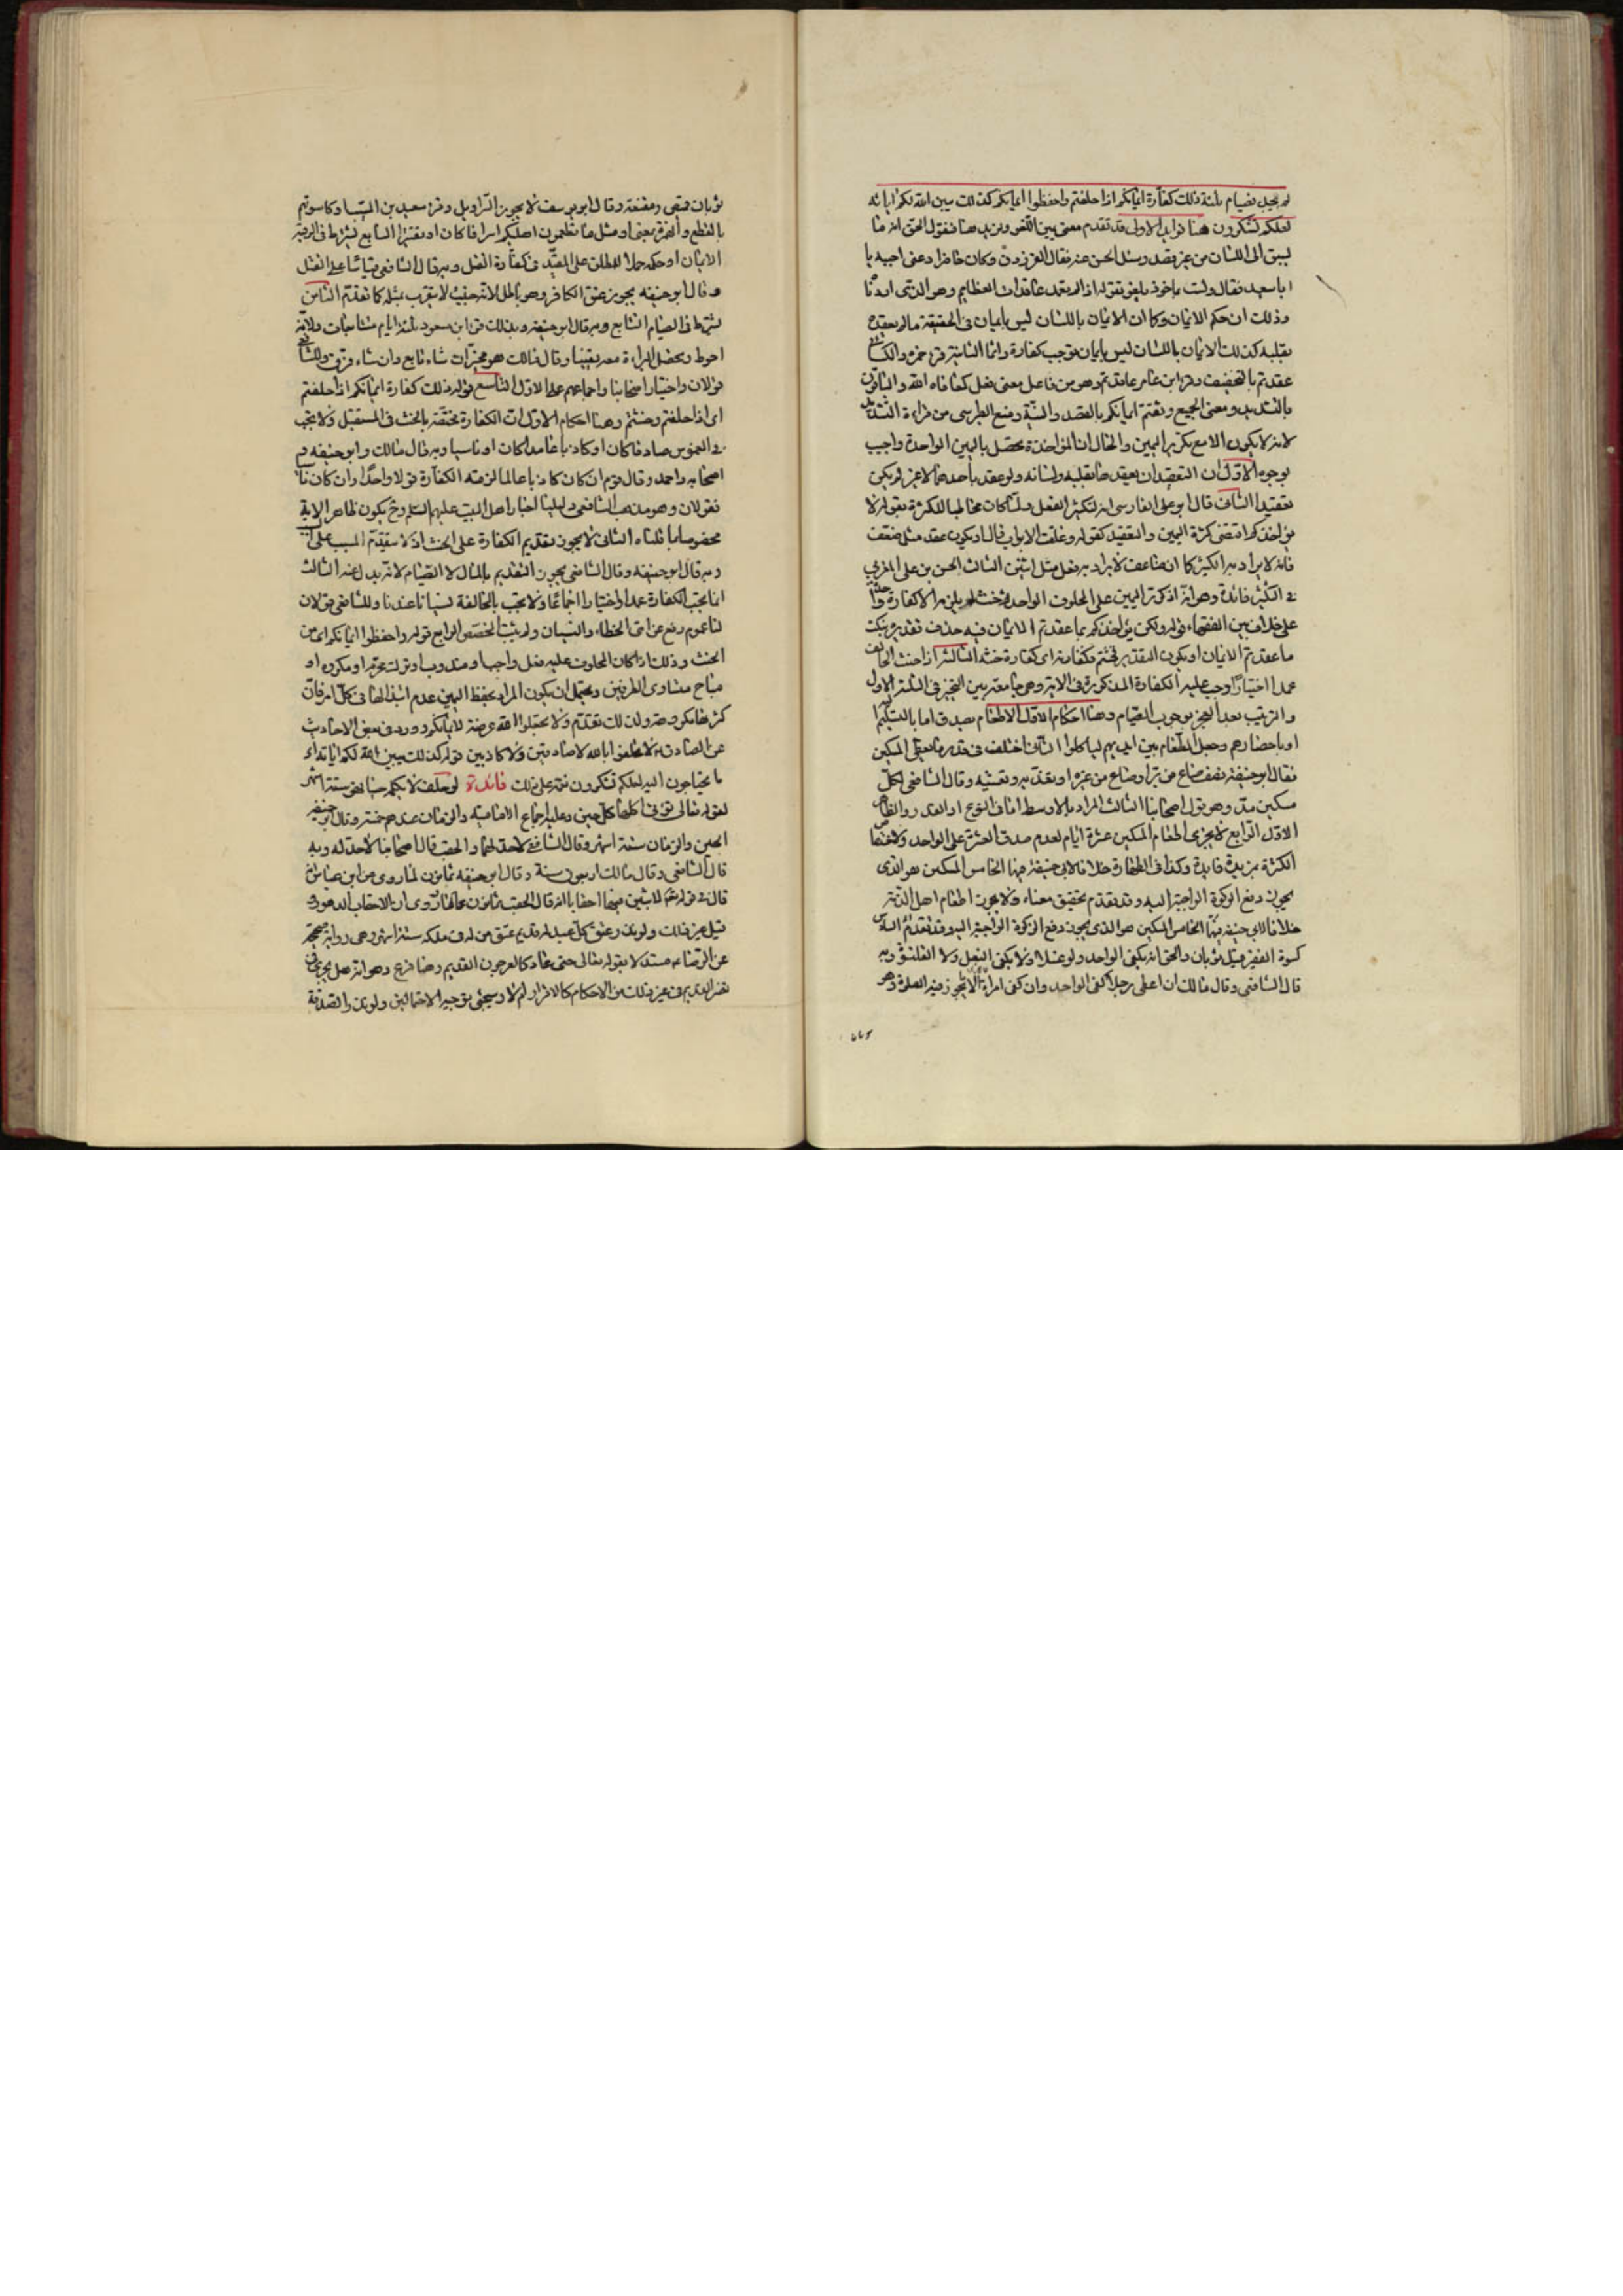 لم يجد فصيام ثلثة ذلك كفارة ايمانكم اذا حلفتم واحفظوا ايمانكم كذلك يبين الله لكم اياته
لعلكم تشكرون هنا فوايد الاولى قد تقدم معنى يمين اللغو ونزيد هنا فنقول الحق انه ما
يسبق الى اللسان من غير قصد وسئل الحسن عنه فقال الفرزدق وكان حاضرا دعنى اجيبه يا
ابا سعيد فقال ولست بماخوذ بلغو تقوله اذا لم تعمد عاقدات العظايم وهو الذى اردنا
وذلك ان حكم الايمان وكما ان الايمان باللسان ليس بايمان فى الحقيقة ما لم يعقده
بقلبه كذلك الايمان باللسان ليس بايمان توجب كفارة وانما الثانية قرء حمزه والكسائى
عقدتم بالتخفيف وقرء ابن عامر عاقدتم وهو من فاعل بمعنى فعل كعافاه الله والباقون
بالتشديد ومعنى الجميع وثقتم ايمانكم بالقصد والنية ومنع الطبرسى من قراءة التشديد
لانه لا يكون الا مع تكرير اليمين والحال ان المؤاخذة تحصل باليمين الواحدة واجيب
بوجوه الاول ان التعقيد ان يعقدها بقلبه ولسانه ولو عقد باحدهما لا غير لم يكن
تعقيدا الثانى قال ابو على الفارسى انه لتكثير الفعل ولما كان مخاطبا للكثرة بقوله لا
يؤاخذكم اقتضى كثرة اليمين والتعقيد كقوله وغلقت الابواب قال او يكون عقد مثل ضعف
فانه لا يراد به التكثير كما ان ضاعف لا يراد به فعل مثل اثنين الثالث الحسن بن على المغربى
فى التكثير فائدة وهو انه اذا كرر اليمين على المحلوف الواحد وحنث لم يلزمه الا كفارة واحدة
على خلاف بين الفقهاء قوله ولكن يؤاخذكم بما عقدتم الايمان فيه حذف تقديره بنكث
ما عقدتم الايمان او يكون التقدير فحنثتم فكفارته اى كفارة حنثه الثالثة اذا حنث الحالف
عمدا اختيارا وجب عليه الكفارة المذكورة فى الاية وهى جامعة بين التخيير فى الثلثة الاول
والترتيب بعد العجز بوجوب الصيام وهنا احكام الاول الاطعام يصدق اما بالتسليم
او باحضارهم وجعل الطعام بين ايديهم لياكلوا الثانى اختلف فى قدر ما يعطى المسكين
فقال ابو حنيفة نصف صاع من بر او صاع من غيره او يغديه ويعشيه وقال الشافعى لكل
مسكين مد وهو قول اصحابنا الثالث المراد بالاوسط اما فى النوع او القدر والظاهر
الاول الرابع لا يجزى اطعام المسكين عشرة ايام لعدم صدق العشرة على الواحد ولاقتضاء
الكثرة مزيد فايدة وكذا فى الظهار خلافا لابى حنيفة فيهما الخامس المسكين هو الذى
يجوز دفع الزكوة الواجبة اليه وقد تقدم تحقيق معناه ولا يجوز اطعام اهل الذمة
خلافا لابى حنيفة فيهما الخامس المسكين هو الذى يجوز دفع الزكوة الواجبة اليه وقد تقدم السادس
كسوة الفقير قيل ثوبان والحق انه يكفى الواحد ولو غسلا ولا يكفى النعل ولا القلنسوة وبه
قال الشافعى وقال مالك ان اعطى رجلا كفى الواحد وان كسى امراة لا يجوز فيه الصلوة وهو
ثوبان قميص ومقنعة وقال ابو يوسف لا يجوز السراويل وقرء سعيد بن المسيب او كاسوتهم
بالقطع والهمزة بمعنى او مثل ما تطعمون اهليكم اسرافا كان او تقتيرا السابع يشترط فى الرقبة
الايمان او حكمه حملا للمطلق على المقيد فى كفارة القتل وبه قال الشافعى قياسا على القتل
وقال ابو حنيفه يجوز عتق الكافر وهو باطل لانه خبيث لا يتقرب بمثله كما تقدم الثامن
يشترط فى الصيام التتابع وبه قال ابو حنيفه وبذلك قرء ابن مسعود ثلثة ايام متتابعات ولانه
احوط ويحصل البراءة معه يقينا وقال مالك هو مخير ان شاء تابع وان شاء فرق وللشافعى
قولان واختيار اصحابنا واجماعهم على الاول التاسع قوله ذلك كفارة ايمانكم اذا حلفتم
اى اذا حلفتم وحنثتم وهنا احكام الاول ان الكفارة مختصة بالحنث فى المستقبل ولا يجب
فى الغموس صادقا كان او كاذبا عامدا كان او ناسيا وبه قال مالك وابو حنيفه و
اصحابه واحمد وقال قوم ان كان كاذبا عالما لزمته الكفارة قولا واحدا وان كان ناسيا
فقولان وهو مذهب الشافعى دليلنا اخبار اهل البيت عليهم السلم وح يكون ظاهر الاية
مخصوصا بما قلناه الثانى لا يجوز تقديم الكفارة على الحنث اذ لا يتقدم المسبب على السبب
وبه قال ابو حنيفه وقال الشافعى يجوز التقديم بالمال لا الصيام لانه بدل عنه الثالث
انما يجب الكفارة عمدا واختيارا اجماعا ولا يجب بالمخالفة نسيانا عندنا وللشافعى قولان
لنا عموم رفع عن امتى الخطاء والنسيان ولم يثبت المخصص الرابع قوله واحفظوا ايمانكم اى من
الحنث وذلك اذا كان المحلوف عليه فعل واجبا او مندوبا او ترك محرم او مكروه او
مباح متساوى الطرفين ويحتمل ان يكون المراد بحفظ اليمين عدم ابتذالها فى كل امر فان
كثرتها مكروهة ولذلك تقدم ولا تجعلوا الله عرضة لايمانكم وورد فى بعض الاحاديث
عن الصادق لا تحلفوا بالله لا صادقين ولا كاذبين قوله كذلك يبين الله لكم اياته اى
ما تحتاجون اليه لعلكم تشكرون نعمه على ذلك فائدة لو حلف لا يكلمه حينا فهو ستة اشهر
لقوله تعالى تؤتى اكلها كل حين وعليه اجماع الامامية والزمان عندهم خمسة وقال ابو حنيفه
الحين والزمان ستة اشهر وقال الشافعى لا حد لهما والحقب قال اصحابنا لا حد له وبه
قال الشافعى وقال مالك اربعون سنة وقال ابو حنيفه ثمانون لما روى عن ابن عباس
قال فى قوله لابثين فيها احقابا انه قال الحقب ثمانون عاما وروى ان الاحقاب الدهور و
قيل غير ذلك ولو نذر عتق كل عبد له قديم عتق من له فى ملكه ستة اشهر وهى رواية صحيحة
عن الرضا مستدلا بقوله تعالى حتى عاد كالعرجون القديم وهنا فرع وهو انه هل يجزى
تفسير القديم فى غير ذلك من الاحكام كالاقرار ام لا وسيجئ توجيه الاحتمالين ولو نذر الصدقة